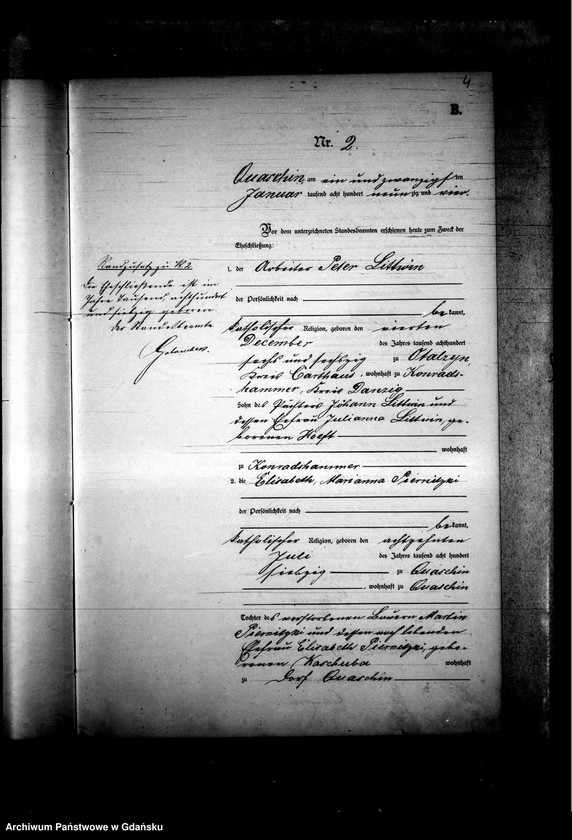 4
B.
Nr. 2.
Quaschin, am ein und zwanzigsten
Januar tausend acht hundert neunzig und vier.
Vor dem unterzeichneten Standesbeamten erschienen heute zum Zweck der
Eheschließung:
1. der Arbeiter Peter Littwin
der Persönlichkeit nach
bekannt,
katholischer Religion, geboren den vierten
December des Jahres tausend achthundert
sechs und sechszig zu
Kreis Carthaus, wohnhaft zu Konrads-
hammer, Kreis Danzig
Sohn des Pächters Johann Littwin und
dessen Ehefrau Julianna Littwin, ge-
borenen Hoeft
wohnhaft
zu Konradshammer
2. die Elisabeth, Marianna Piernitzki
der Persönlichkeit nach
bekannt,
katholischer Religion, geboren den achtzehnten
Juli des Jahres tausend acht hundert
siebzig zu Quaschin
, wohnhaft zu Quaschin
Tochter des verstorbenen Bauern Martin
Piernitzki und dessen noch lebenden
Ehefrau Elisabeth Piernitzki, gebo-
renen Kaschuba wohnhaft
zu Dorf Quaschin
Randzusatz zu N 2
Die Eheschließende ist im
Jahre tausend, achthundert
und siebzig geboren
Der Standesbeamte
Archiwum Państwowe w Gdańsku